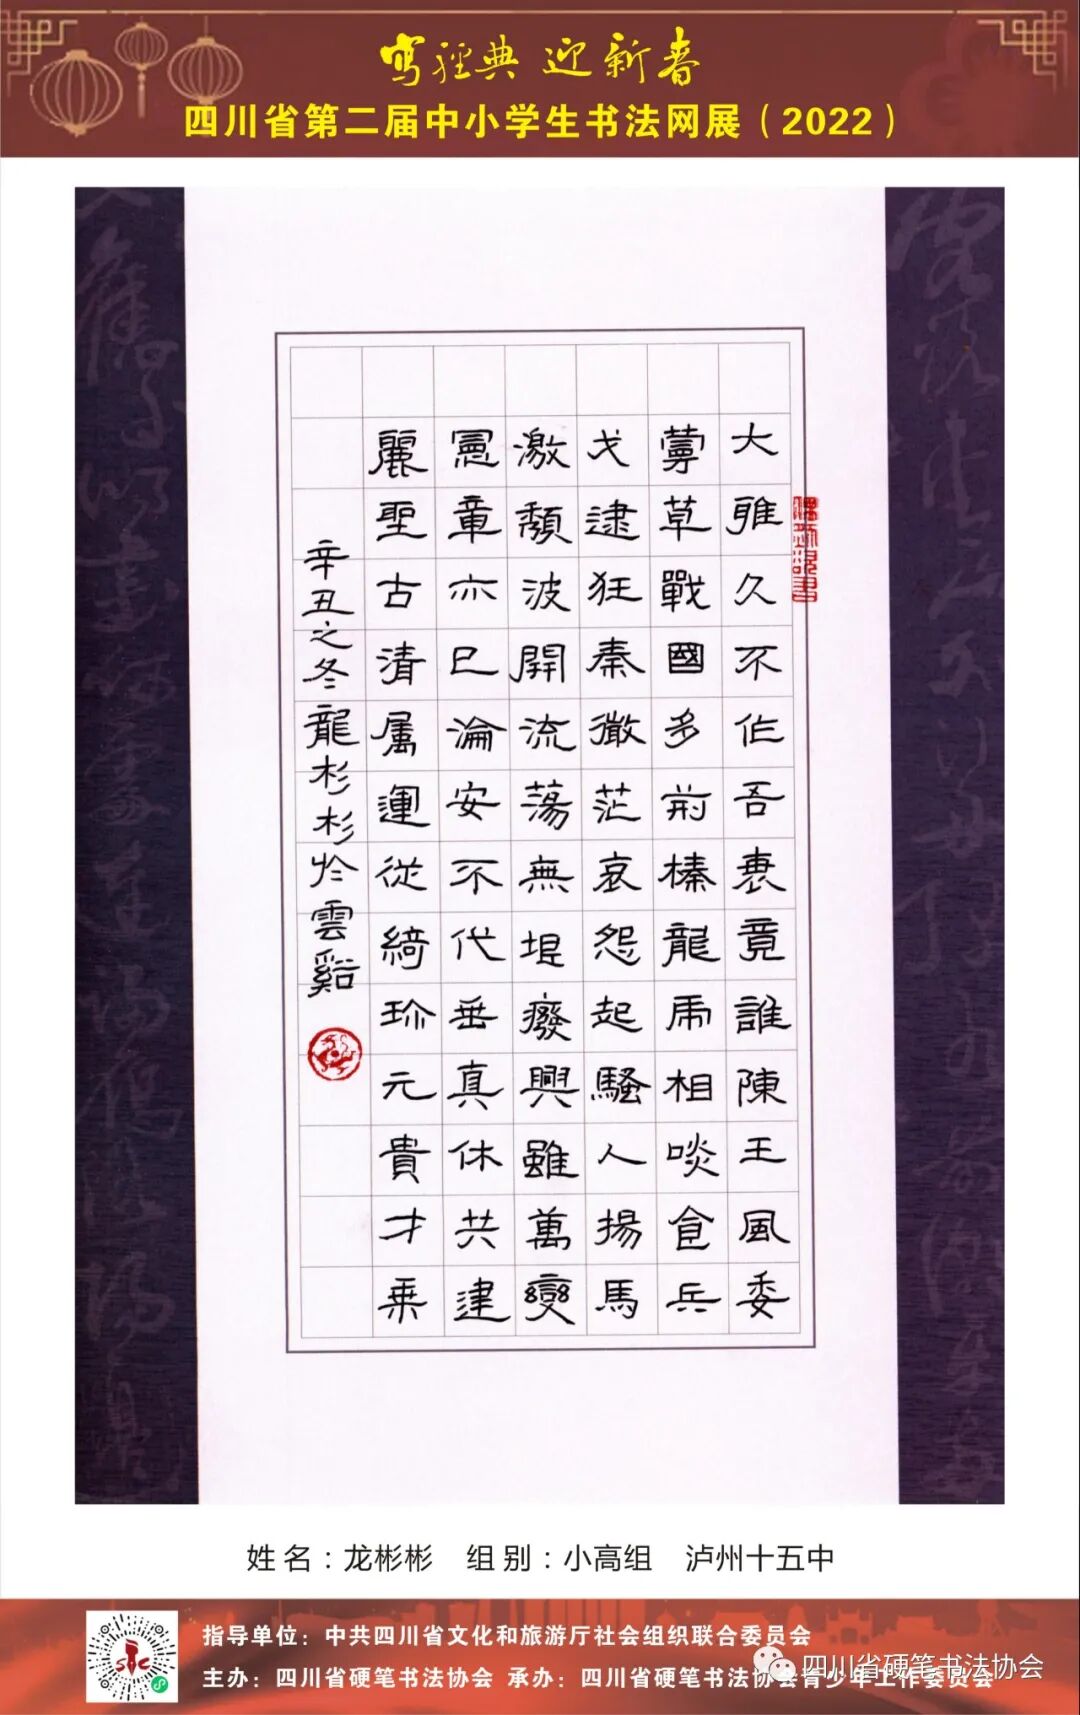 写经典 迎新春
四川省第二届中小学生书法网展（2022）
大雅久不作吾衰竟誰陳王風委
蔓草戰國多荊榛龍虎相啖食兵
戈逮狂秦微茫哀怨起騷人揚馬
激頹波開流蕩無垠廢興雖萬變
憲章亦已淪安不代垂真休共建
麗聖古清属運從綺珍元貴才乘
辛丑之冬龍杉杉於雲谿
姓名：龙彬彬 组别：小高组 泸州十五中
指导单位：中共四川省文化和旅游厅社会组织联合委员会
主办：四川省硬笔书法协会 承办：四川省硬笔书法协会青少年工作委员会
四川省硬笔书法协会